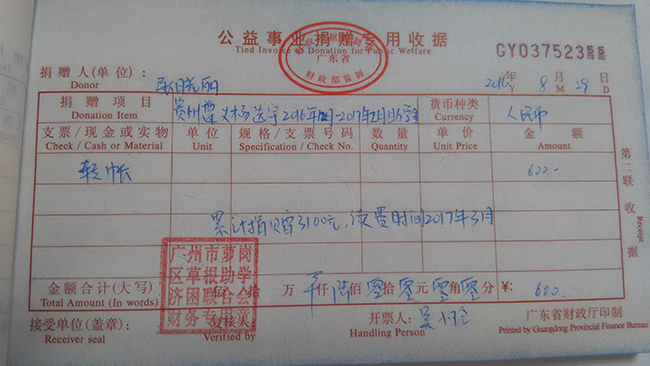 公益事业捐赠专用收据
Tied Invoice of Donation for Public Welfare
广东省
财政部监制
GY03752355
捐赠人(单位):
Donor
2016年 8月 29日
Y M D
捐赠项目 贵州遵义杨 宇2016年 -2017年2月 货币种类 人民币
Donation Items Currency
支票/现金或实物 单位 规格/支票号码 数量 单价 金额
Check / Cash or Material Unit Specification / Check No. Quantity Unit Price Amount
转帐 600.-
累计捐赠3100元,续费时间2017年3月
第二联 收据
Receipt
广州市萝岗
区草根助学
济困联合会
财务专用章
金额合计(大写) 拾 万 仟陆佰零拾零元零角零分 ¥: 600.
Total Amount (In words)
接受单位(盖章): 复核人: 开票人: 吴
Receiver seal Verified by Handling Person
广东省财政厅印制
Printed by Guangdong Provincial Finance Bureau